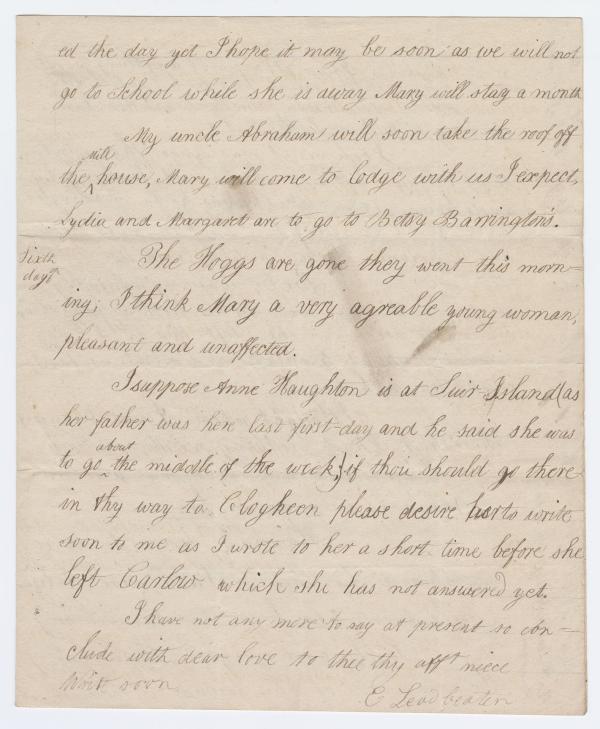 ed the day yet I hope it may be soon as we will not
go to School while she is away Mary will stay a month
My uncle Abraham will soon take the roof off
mill
the house, Mary will come to lodge with us I expect,
Lydia and Margaret are to go to Betsy Barrington's.
Sixth
day
The Hoggs are gone they went this morn-
ing; I think Mary a very agreable young woman,
pleasant and unaffected.
I suppose Anne Haughton is at Suir-Island (as
her father was here last first-day and he said she was
about
to go the middle of the week,) if thou should go there
in thy way to Clogheen please desire her to write
soon to me as I wrote to her a short time before she
left Carlow which she has not answered yet.
I have not any more to say at present so con-
clude with dear love to thee thy afft niece
Write soon
E Leadbeater